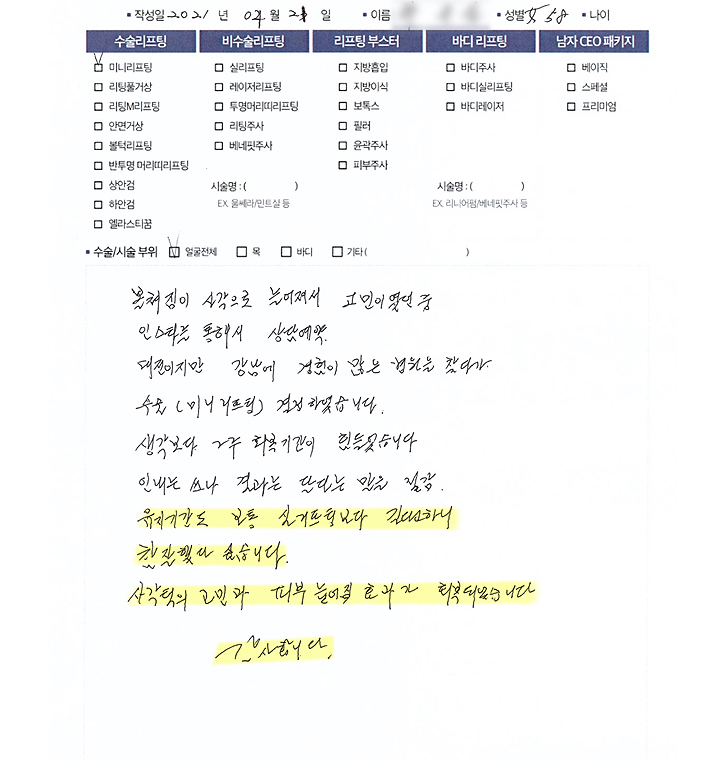 ▪ 작성일 2021 년 04 월 21 일 ▪ 이름 ▪ 성별 女 58 ▪ 나이
수술리프팅 비수술리프팅 리프팅 부스터 바디 리프팅 남자 CEO 패키지
미니리프팅 실리프팅 지방흡입 바디주사 베이직
리팅풀거상 레이저리프팅 지방이식 바디실리프팅 스페셜
리팅M리프팅 투명머리띠리프팅 보톡스 바디레이저 프리미엄
안면거상 리팅주사 필러
볼턱리프팅 베네핏주사 윤곽주사
반투명 머리띠리프팅 피부주사
상안검 시술명 : ( ) 시술명 : ( )
하안검 EX. 울쎄라/민트실 등 EX. 리니어펌/베네핏주사 등
엘라스티꿈
▪ 수술/시술 부위 얼굴전체 목 바디 기타 ( )
사각으로 늘어져서 고민이였던 중
인스타를 통해서 상담예약.
대전이지만 강남에 경험이 많은 병원을 찾다가
수술 (미니리프팅) 결정하였습니다.
생각보다 2주 회복기간이 힘들었습니다
인내는 쓰나 결과는 달다는 말을 실감.
유지기간도 보통 실리프팅보다 길다하니
참 잘했다 싶습니다.
사각턱의 고민과 피부 늘어짐 효과가 회복되었습니다
감사합니다.